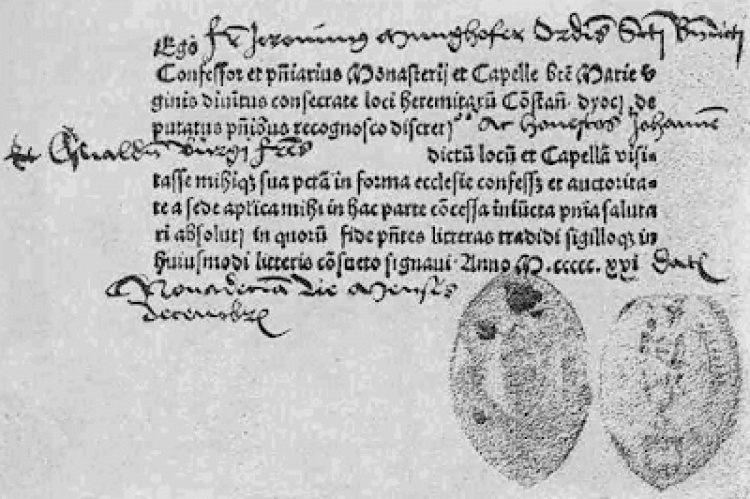 Ego fr̃ Jeronimus Munghofer Ordĩs Scti Bñdicti
Confessor et pñiarius Monasterij et Capelle btẽ Marie v̾
ginis diuinitus consecrate loci heremitarũ Cõstañ. dyocj de
putatus pñibus recognosco discretj os ac honestos Johannẽ
et Oswaldũ Burgi fr̃es dictũ locũ et Capellã visi-
tasse mihiqꝫ sua pctã in forma ecclesie confessꝫ et auctorita-
te a sede aplica mihi in hac parte cõcessa iniũcta pñia saluta
ri absolutj in quorũ fide pñtes litteras tradidi sigilloqꝫ in
huiusmodi litteris cõsueto signaui. Anno M. ccccc. xxj Datꝫ
die Mensis
decembrꝭ